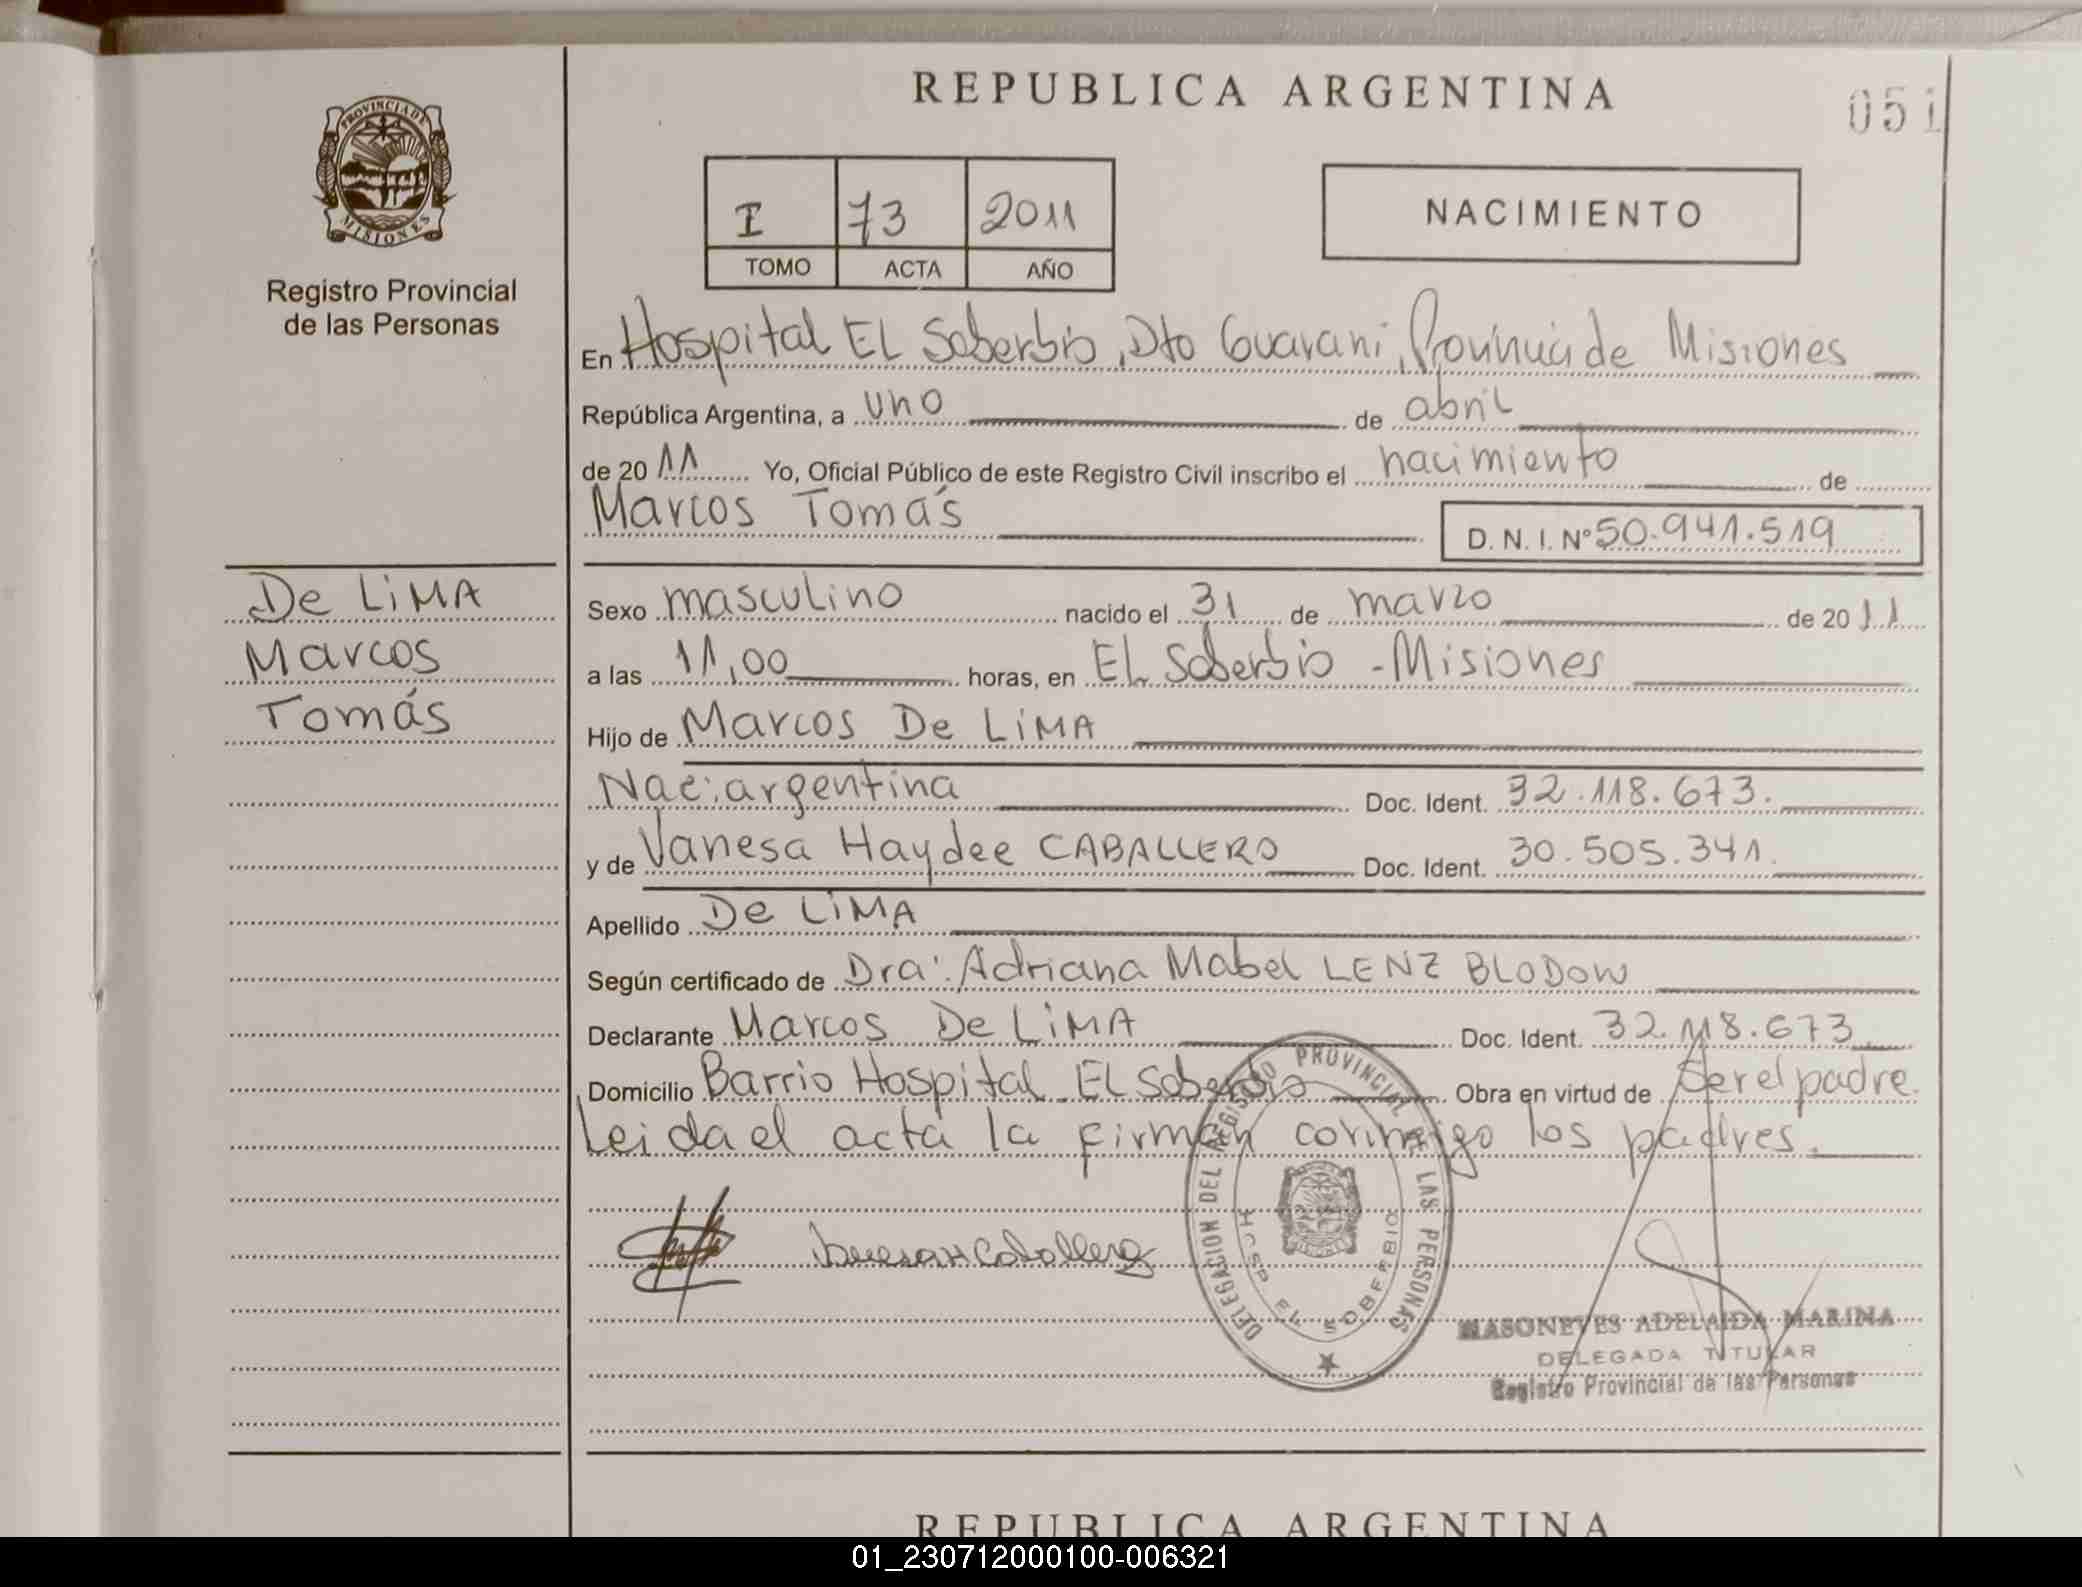 REPUBLICA ARGENTINA
051
PROVINCIA DE
MISIONES
Registro Provincial
de las Personas
I 73 2011
TOMO ACTA AÑO
NACIMIENTO
En Hospital EL Soberbio, Dto Guarani, Provincia de Misiones
República Argentina, a uno de abril
de 2011 Yo, Oficial Público de este Registro Civil inscribo el nacimiento de
Marcos Tomás
D. N. I. Nº 50.941.519
De LiMA
Marcos
Tomás
Sexo masculino nacido el 31 de marzo de 2011
a las 11,00 horas, en EL Soberbio - Misiones
Hijo de Marcos De LiMA
Nac: argentina Doc. Ident. 32.118.673.
y de Vanesa Haydee CABALLERO Doc. Ident. 30.505.341.
Apellido De LiMA
Según certificado de Dra: Adriana Mabel LENZ BLODOW
Declarante Marcos De LiMA Doc. Ident. 32.118.673
Domicilio Barrio Hospital - EL Soberbio Obra en virtud de Ser el padre.
Leida el acta la firman conmigo los padres.
DELEGACION DEL REGISTRO PROVINCIAL DE LAS PERSONAS
HOSP. EL SOBERBIO
MASONEVES ADELAIDA MARINA
DELEGADA TITULAR
Registro Provincial de las Personas
REPUBLICA ARGENTINA
01_230712000100-006321